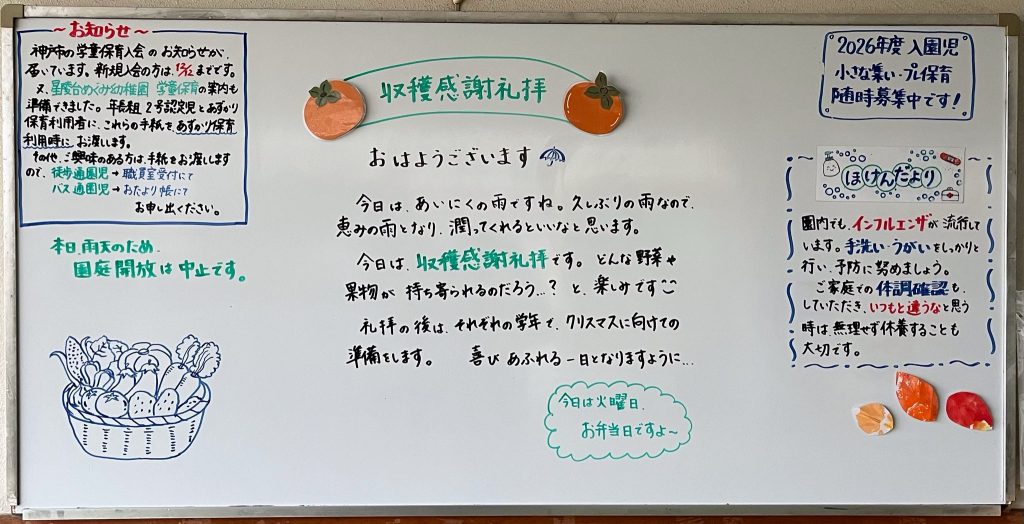 ～お知らせ～
神戸市の学童保育入会のお知らせが、
届いています。新規入会の方は、12/12までです。
又、星陵台めぐみ幼稚園 学童保育の案内も
準備できました。年長組、2号認定児とあずかり
保育利用者に、これらの手紙を、あずかり保育
利用時に、お渡しします。
その他、ご興味のある方は、手紙をお渡しします
ので、徒歩通園児→職員室受付にて
バス通園児→おたより帳にて
お申し出ください。
本日、雨天のため、
園庭開放は中止です。
収穫感謝礼拝
おはようございます
今日は、あいにくの雨ですね。久しぶりの雨なので、
恵みの雨となり、潤ってくれるといいなと思います。
今日は、収穫感謝礼拝です。どんな野菜や
果物が持ち寄られるのだろう…？と、楽しみです
礼拝の後は、それぞれの学年で、クリスマスに向けての
準備をします。 喜びあふれる一日となりますように…
今日は火曜日、
お弁当日ですよ～
2026年度 入園児
小さな集い・プレ保育
随時募集中です！
ほけんだより
園内でも、インフルエンザが流行して
います。手洗い・うがいをしっかりと
行い、予防に努めましょう。
ご家庭での体調確認も、
していただき、いつもと違うなと思う
時は無理せず休養することも
大切です。